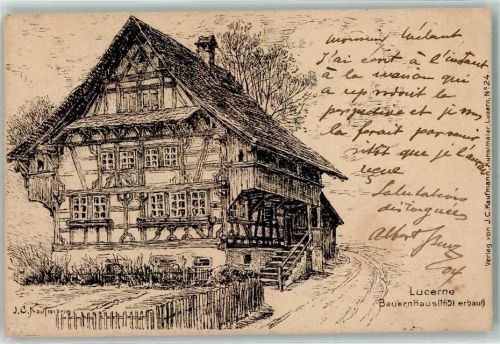 Monsieur
J'ai écrit à l'instant
à la maison qui
a reproduit la
et je vous
la ferait parvenir
sitôt que je l'aurai
reçue
Salutations
distinguées
Albert
04
Lucerne
Bauernhaus (1651 erbaut)
J.C. Kaufmann
Verlag von J.C. Kaufmann, Kunstmaler, Luzern, No 24.